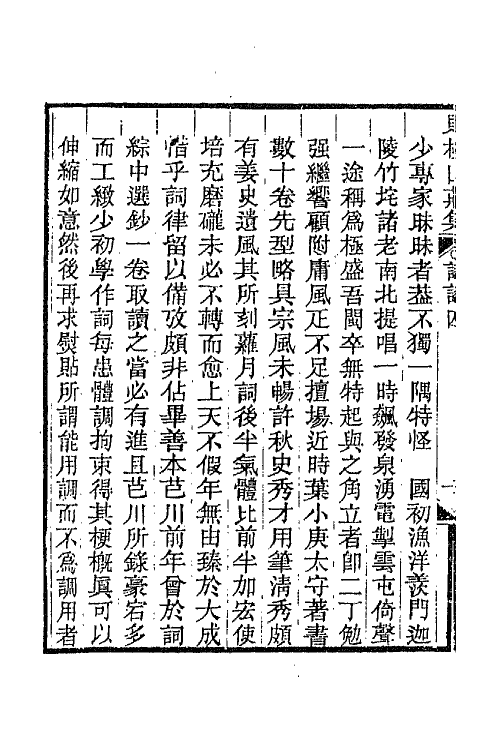 賭棋山莊集 詞話四
少專家昧昧者葢不獨一隅特怪　國初漁洋羨門迦
陵竹垞諸老南北提唱一時飆發泉湧電掣雲屯倚聲
一途稱為極盛吾閩卒無特起與之角立者卽二丁勉
强繼響顧附庸風正不足擅場近時葉小庚太守著書
數十卷先型略具宗風未暢許秋史秀才用筆淸秀頗
有姜史遺風其所刻蘿月詞後半氣體比前半加宏使
培充磨礲未必不轉而愈上天不假年無由臻於大成
惜乎詞律留以備攷頗非佔畢善本芑川前年曾於詞
綜中選鈔一卷取讀之當必有進且芑川所錄豪宕多
而工緻少初學作詞每患體調拘束得其梗槪眞可以
伸縮如意然後再求熨貼所謂能用調而不為調用者